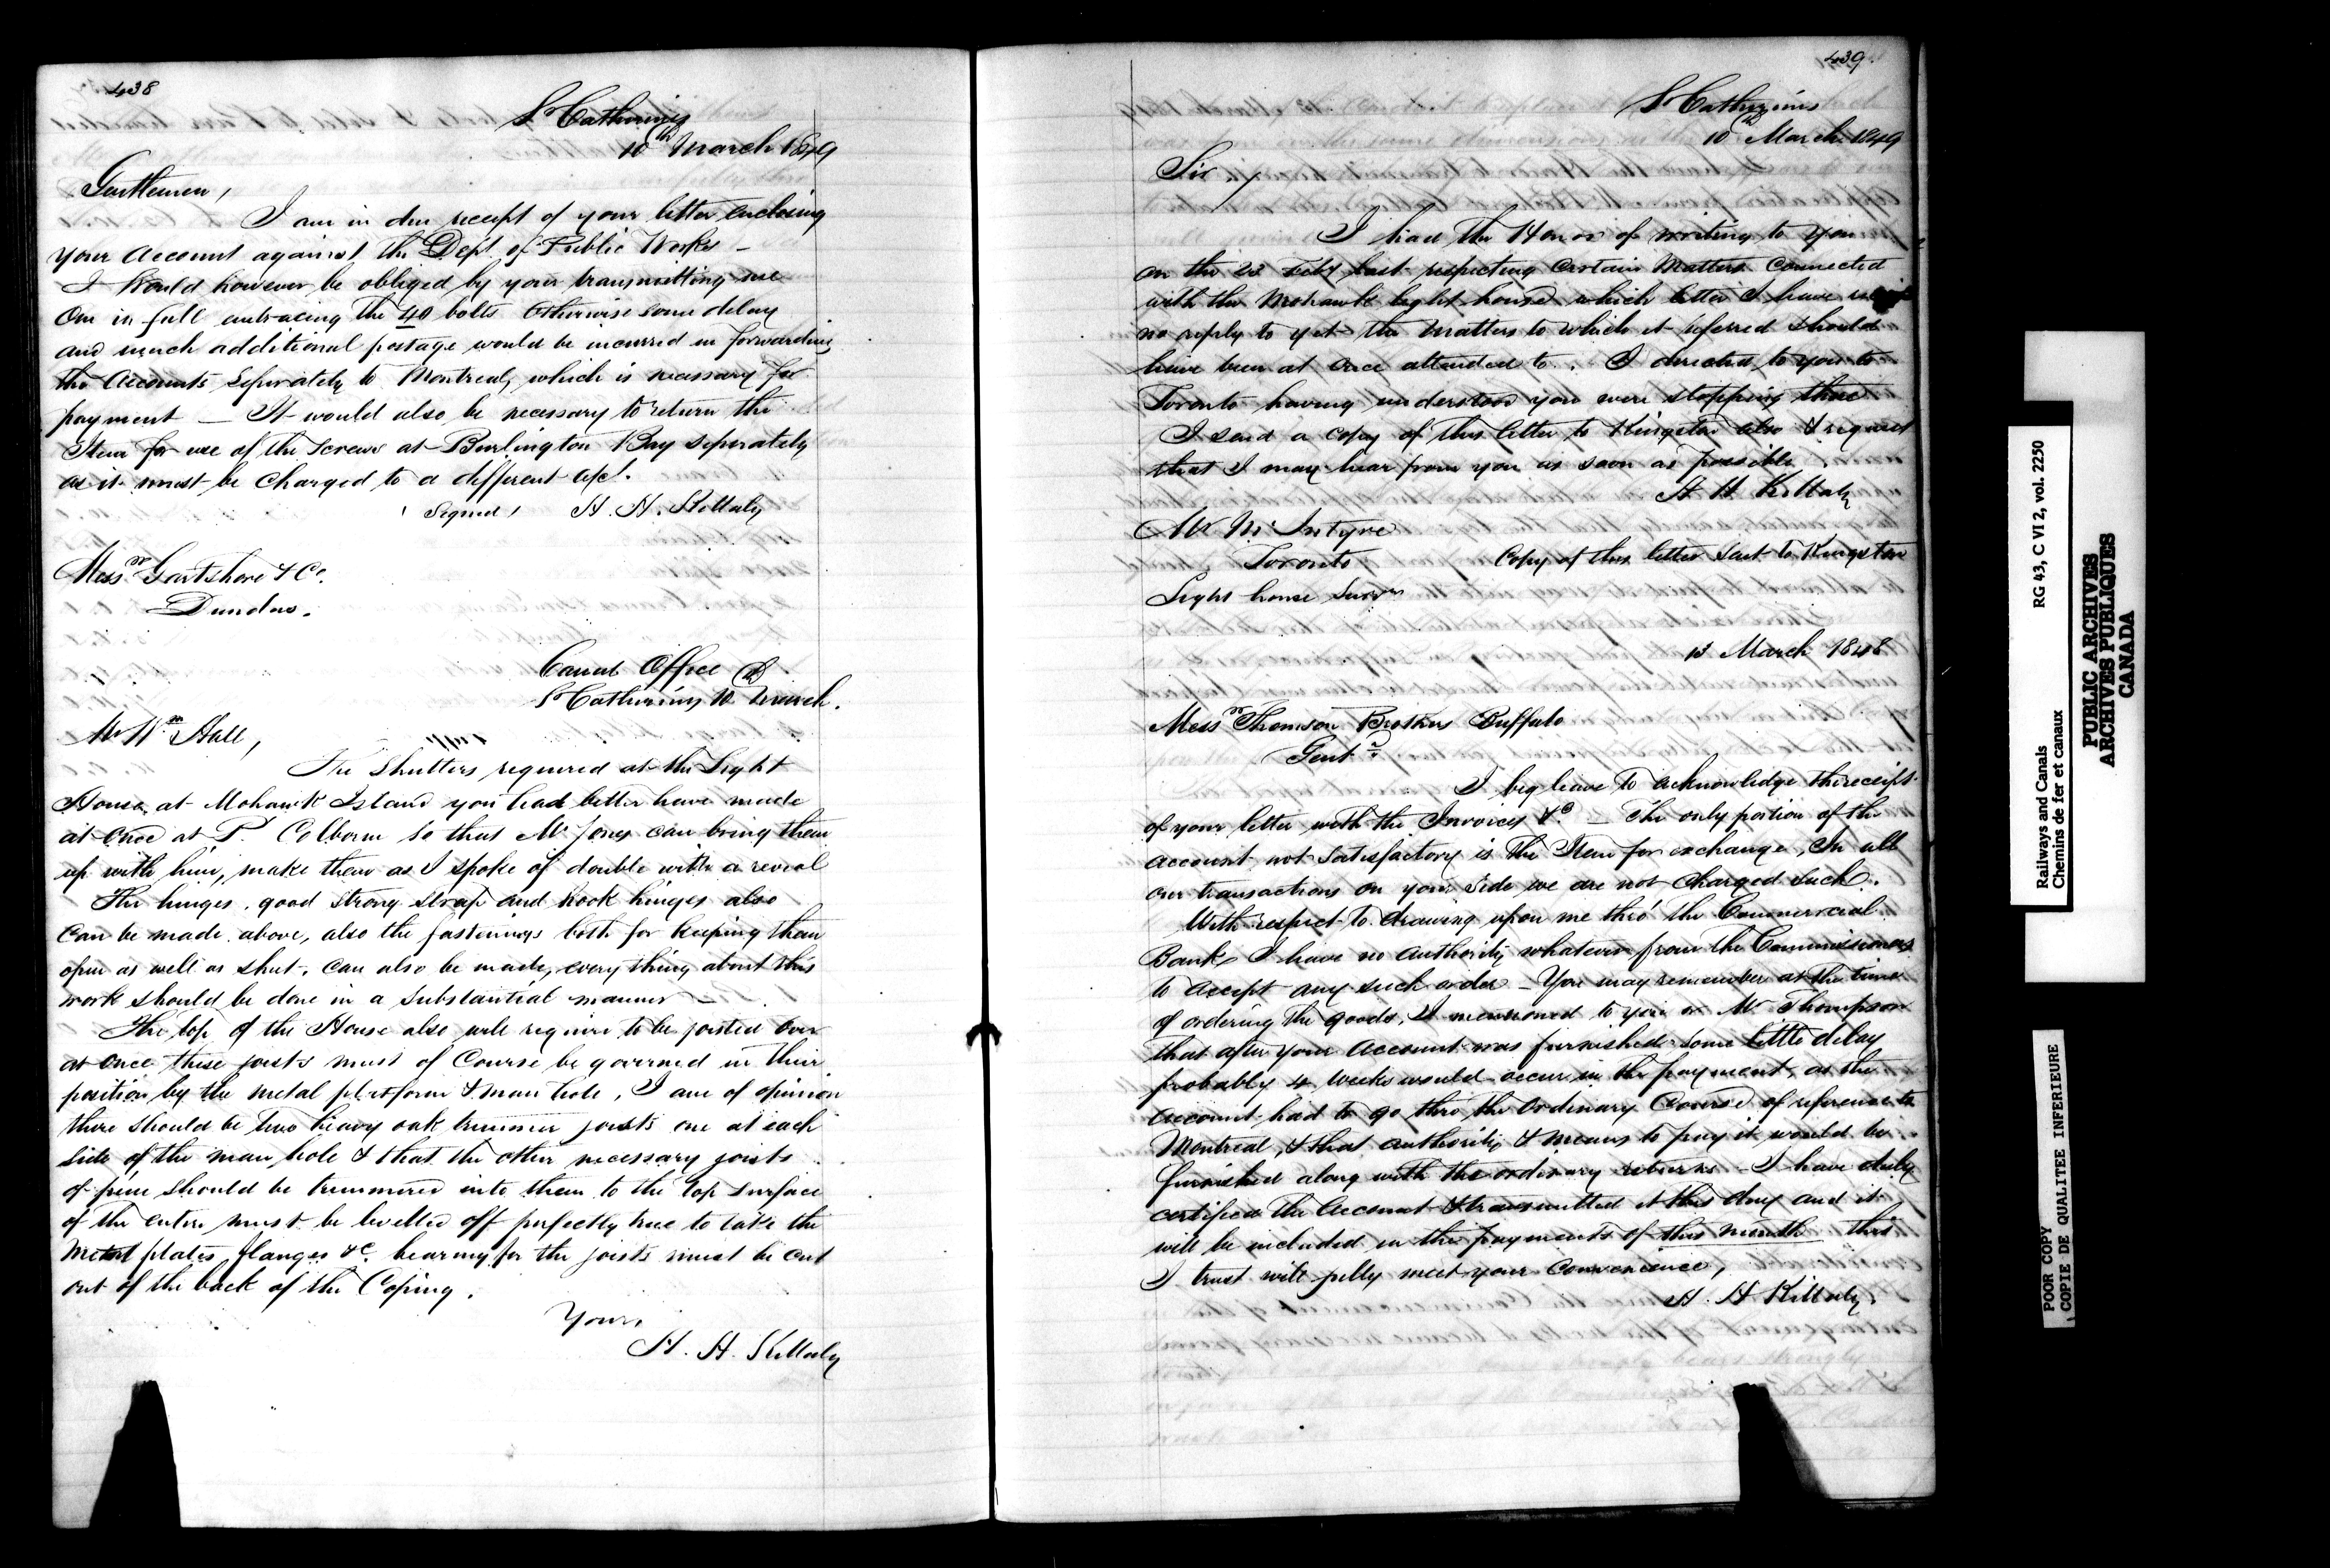 438
St Catharines
10th March 1849
Gentlemen,
I am in due receipt of your letter enclosing
your Account against the Dept. of Public Works –
I Would however be obliged by your transmitting me
One in full embracing the 40 bolts Otherwise some delay
and much additional postage would be incurred in forwarding
the Accounts Seperately to Montreal, which is necessary for
payment — It would also be necessary to return the
Item for use of the Screws at Burlington Bay seperately
as it must be Charged to a different a/c.
(Signed) H. H. Killaly
Messrs Gartshore & Co.
Dundas.
Canal Office
St Catharines 10th March.
Mr Wm Hall,
The Shutters required at the Light
House at Mohawk Island you had better have made
at once at P. Colborne so that Mr Jones can bring them
up with him, make them as I spoke of double with a reveal
The hinges, good strong strap and hook hinges also
can be made above, also the fastenings both for keeping them
open as well as shut, can also be made, every thing about this
work should be done in a Substantial manner –
The top of the House also will require to be joisted over
at once these joists must of Course be governed in their
position by the metal platform & man hole, I am of opinion
there should be two heavy oak trimmer joists one at each
side of the man hole & that the other necessary joists
of pine should be trimmered into them to the top surface
of the entire must be levelled off perfectly true to take the
Metal plates, flanges &c. bearing for the joists must be cut
out of the back of the Coping.
Yours
H. H. Killaly
439
St Catharines
10th March 1849
Sir,
I had the Honor of writing to you
on the 23 Feby last respecting Certain Matters Connected
with the Mohawk light house which letter I have
no reply to yet the matters to which it referred should
have been at once attended to. I directed to you to
Toronto having understood you were stopping there
I send a copy of this letter to Kingston also & request
that I may hear from you as soon as possible.
H H Killaly
Mr McIntyre
Toronto
Copy of this letter sent to Kingston
Light house
13 March 1848
Messrs Thomson Brothers Buffalo
Gentn
I beg leave to acknowledge the receipt
of your letter with the Invoices &c – The only portion of the
account not satisfactory is the Item for exchange, In all
our transactions on your side we are not charged such.
With respect to drawing upon me thro' the Commercial
Bank I have no authority whatever from the Commissioners
to accept any such order – You may remember at the time
of ordering the goods, I mentioned to you or Mr Thompson
that after your Account was furnished some little delay
probably 4 weeks would occur in the payment, as the
account had to go thro the Ordinary Course of reference to
Montreal, & that authority & means to pay it would be
furnished along with the ordinary returns – I have duly
certified the Account & transmitted it this day and it
will be included in the payments of this month this
I trust will fully meet your Convenience,
H. H Killaly.
Railways and Canals
Chemins de fer et canaux
RG 43, C VI 2, vol. 2250
PUBLIC ARCHIVES
ARCHIVES PUBLIQUES
CANADA
POOR COPY
COPIE DE QUALITEE INFERIEURE